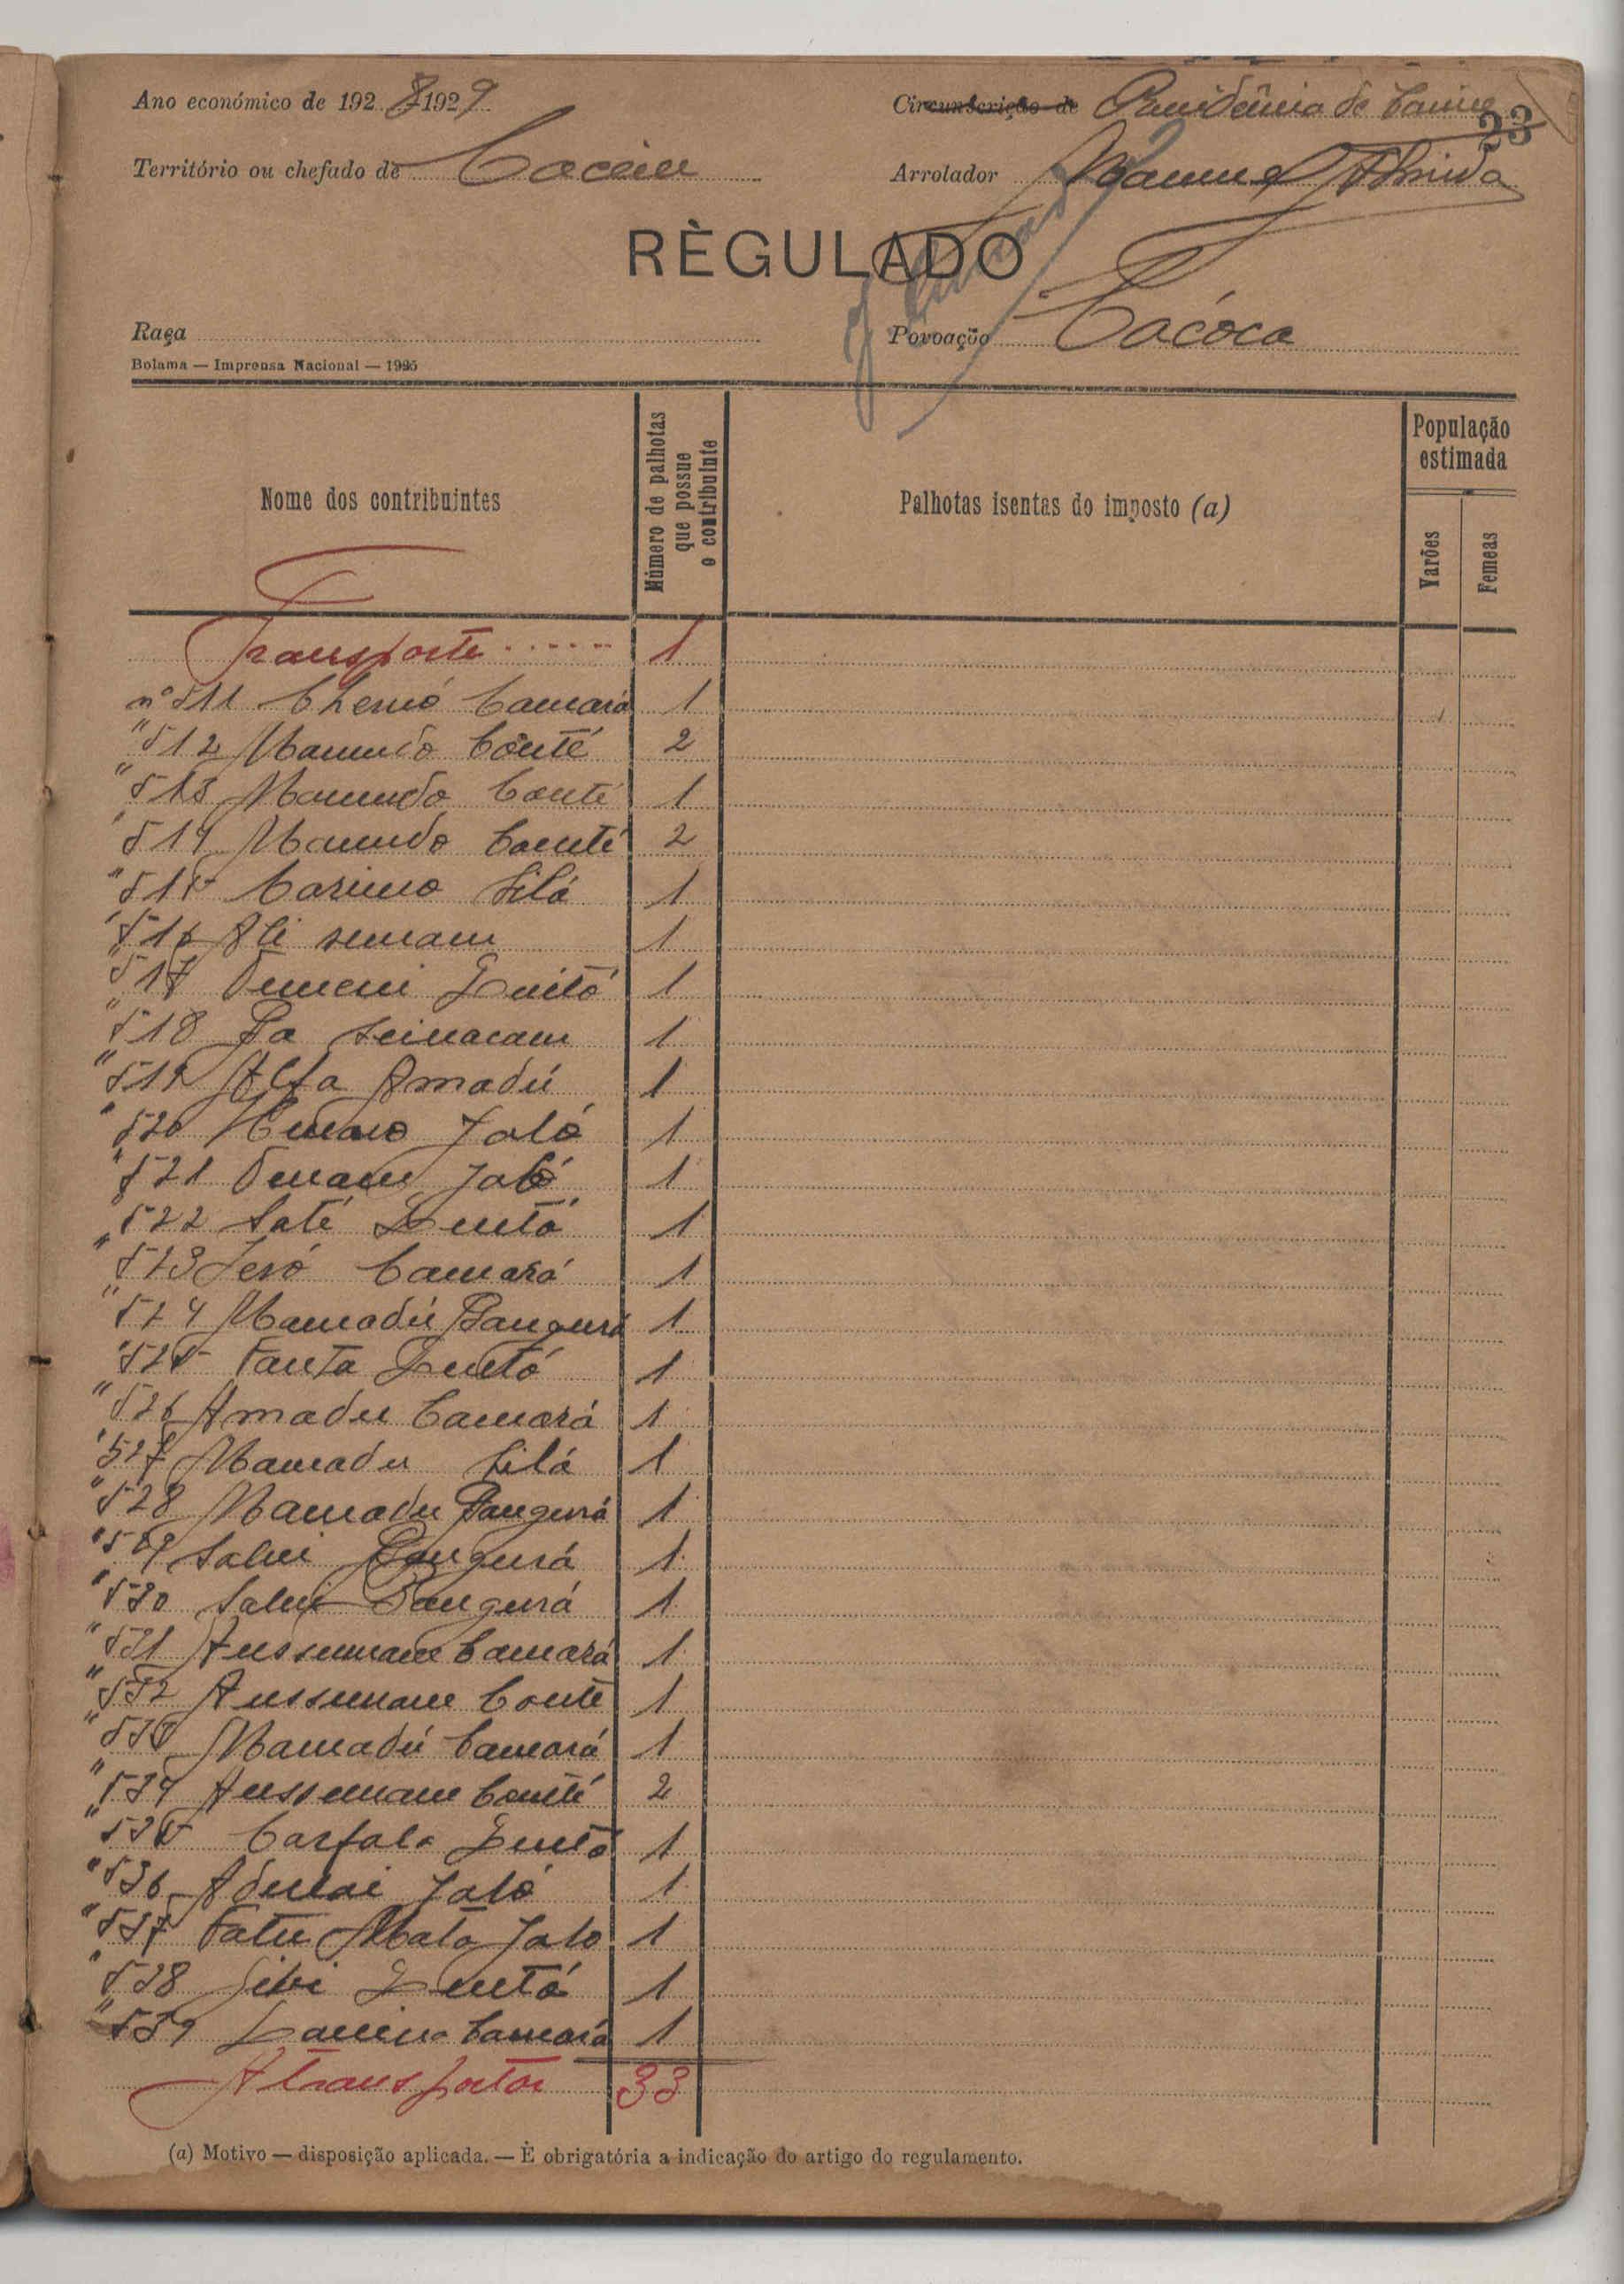 Ano económico de 1928-1929
Circunscrição de Residência de Cacine
23
Território ou chefado de Cacine
Arrolador Manuel Almeida
RÈGULADO
Raça
Povoação Cacóca
Bolama — Imprensa Nacional — 1925
Nome dos contribuintes
Número de palhotas que possue o contribuinte
Palhotas isentas do imposto (a)
População estimada
Varões
Femeas
Transporte ...... 1
nº 511 Chernó Camará 1
" 512 Mamudo Conté 2
" 513 Mamudo Conté 1
" 514 Mamudo Conté 2
" 515 Carimo Silá 1
" 516 Ali 1
" 517 1
" 518 Pa 1
" 519 Alfa Amadú 1
" 520 Jaló 1
" 521 Jaló 1
" 522 Saté 1
" 523 Jeró Camará 1
" 524 Mamadú Bangurá 1
" 525 Fanta 1
" 526 Amadu Camará 1
" 527 Mamadu Silá 1
" 528 Mamadu Bangurá 1
" 529 Salui Bangurá 1
" 530 Salui Bangurá 1
" 531 Aussumane Camará 1
" 532 Aussumane Conté 1
" 533 Mamadú Camará 1
" 534 Aussumane Conté 2
" 535 Carfala 1
" 536 Jaló 1
" 537 Fatu Mata Jalo 1
" 538 1
" 539 Lamine Camará 1
A transportar 33
(a) Motivo — disposição aplicada. — È obrigatória a indicação do artigo do regulamento.